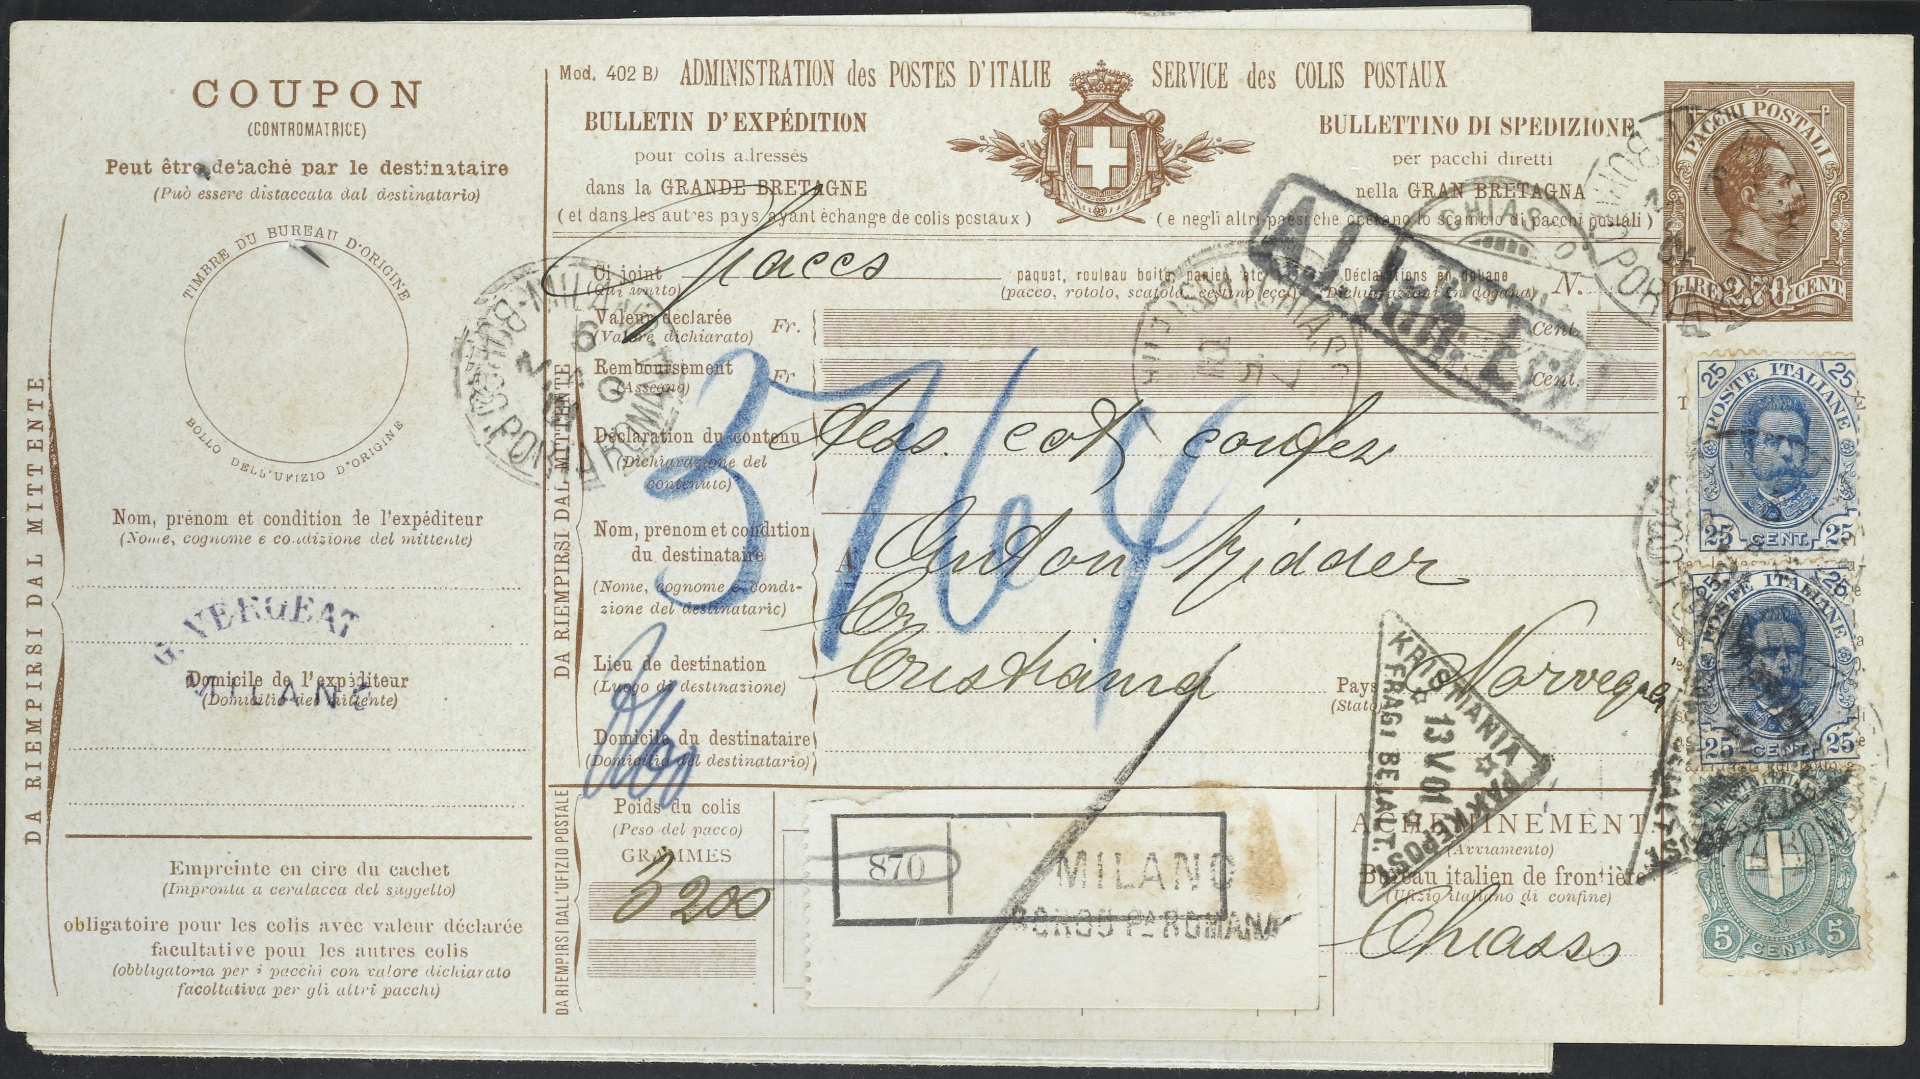 COUPON
(CONTROMATRICE)
Peut être detaché par le destinataire
(Può essere distaccata dal destinatario)
TIMBRE DU BUREAU D'ORIGINE
BOLLO DELL'UFIZIO D'ORIGINE
Nom, prénom et condition de l'expéditeur
(Nome, cognome e condizione del mittente)
G. VERGEAT
MILANO
Domicile de l'expéditeur
(Domicilio del mittente)
DA RIEMPIRSI DAL MITTENTE
Empreinte en cire du cachet
(Impronta a ceralacca del suggello)
obligatoire pour les colis avec valeur déclarée
facultative pour les autres colis
(obbligatoria per i pacchi con valore dichiarato
facoltativa per gli altri pacchi)
Mod. 402 B) ADMINISTRATION des POSTES D'ITALIE SERVICE des COLIS POSTAUX
BULLETIN D'EXPÉDITION
pour colis adressés
dans la GRANDE BRETAGNE
(et dans les autres pays ayant échange de colis postaux)
BULLETTINO DI SPEDIZIONE
per pacchi diretti
nella GRAN BRETAGNA
(e negli altri paesi che operano lo scambio di pacchi postali)
PACCHI POSTALI
LIRE 2.70 CENT.
CHIASSO
Ci joint
(Qui unito)
paquet, rouleau boite, panier, etc.
(pacco, rotolo, scatola, cestino ecc.)
Déclarations en douane
(Dichiarazioni in dogana)
N.
Valeur déclarée
(Valore dichiarato)
Fr.
Cent.
Remboursement
(Assegno)
Fr.
Cent.
3764
DA RIEMPIRSI DAL MITTENTE
Déclaration du contenu
(Dichiarazione del
contenuto)
Tess. cot confez
Nom, prenom et condition
du destinataire
(Nome, cognome e condi-
zione del destinatario)
A Anton Ridder
Lieu de destination
(Luogo di destinazione)
Cristiania
Pays
(Stato)
Norvegia
Domicile du destinataire
(Domicilio del destinatario)
KRISTIANIA PAKKEPOST
13 V 01
FRAGT BETALT.
DA RIEMPIRSI DALL'UFIZIO POSTALE
Poids du colis
(Peso del pacco)
GRAMMES
3200
870
MILANO
BORGO Pa ROMANA
ACHEMINEMENT
(Avviamento)
Bureau italien de frontière
(Ufizio italiano di confine)
Chiasso
25 POSTE ITALIANE 25
25 CENT. 25
25 POSTE ITALIANE 25
25 CENT. 25
POSTE ITALIANE
5 CENT. 5